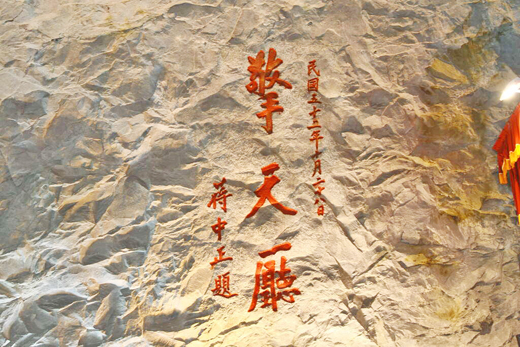 民國五十二年 月 日
擎天廳
蔣中正題